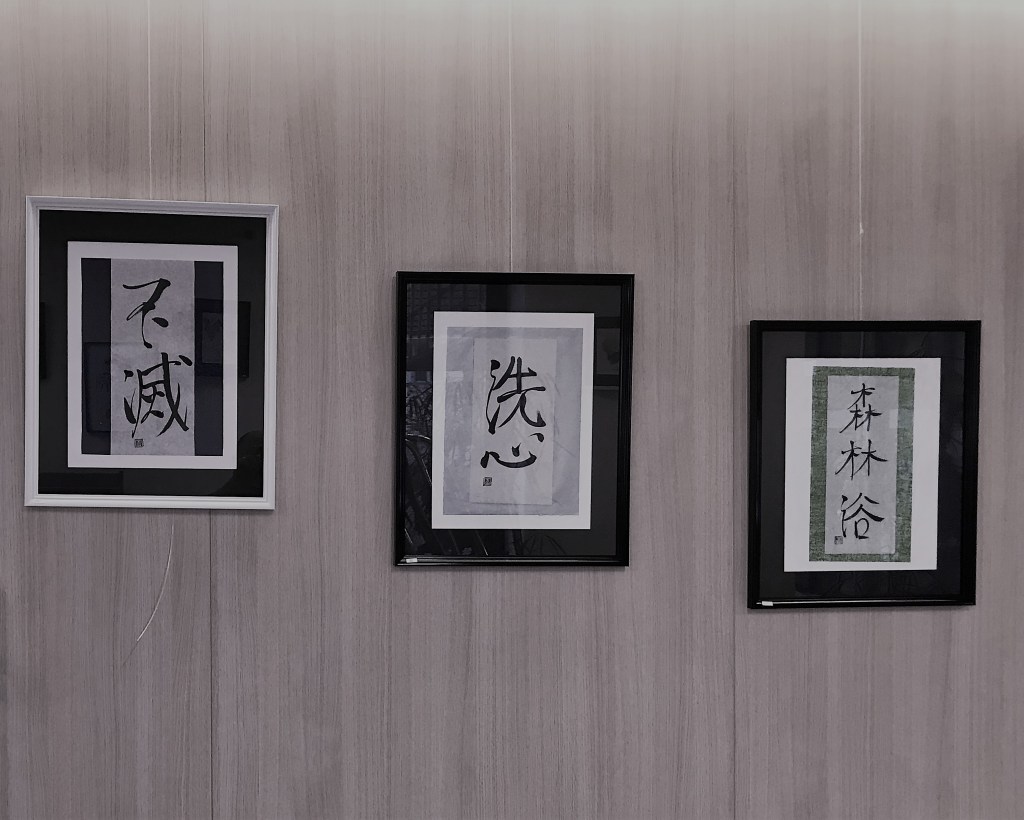 不滅
洗心
森林浴